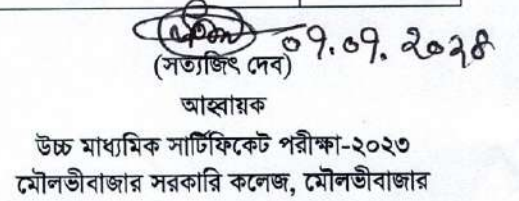 ০৭.০৭.২০২৪
(সত্যজিৎ দেব)
আহ্বায়ক
উচ্চ মাধ্যমিক সার্টিফিকেট পরীক্ষা-২০২৩
মৌলভীবাজার সরকারি কলেজ, মৌলভীবাজার